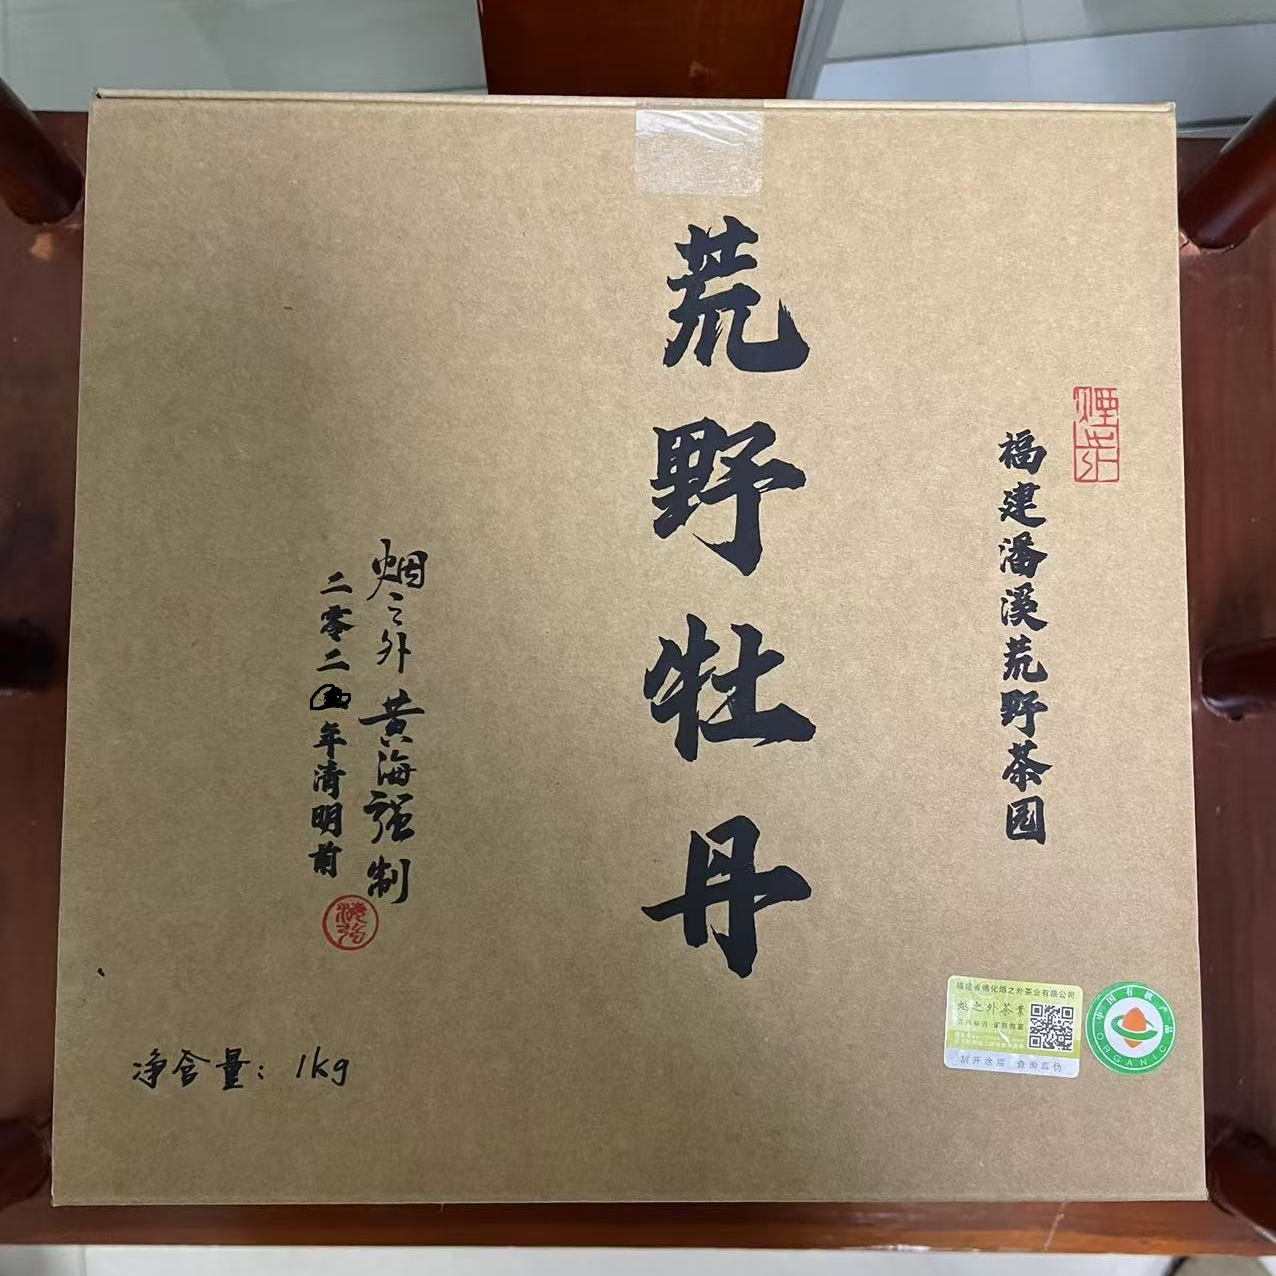 福建潘溪荒野茶园
荒野牡丹
烟之外 黄海强制
二零二年清明前
净含量：1kg
福建省德化烟之外茶业有限公司
烟之外茶業
刮开涂层 查询真伪
中国有机产品
ORGANIC